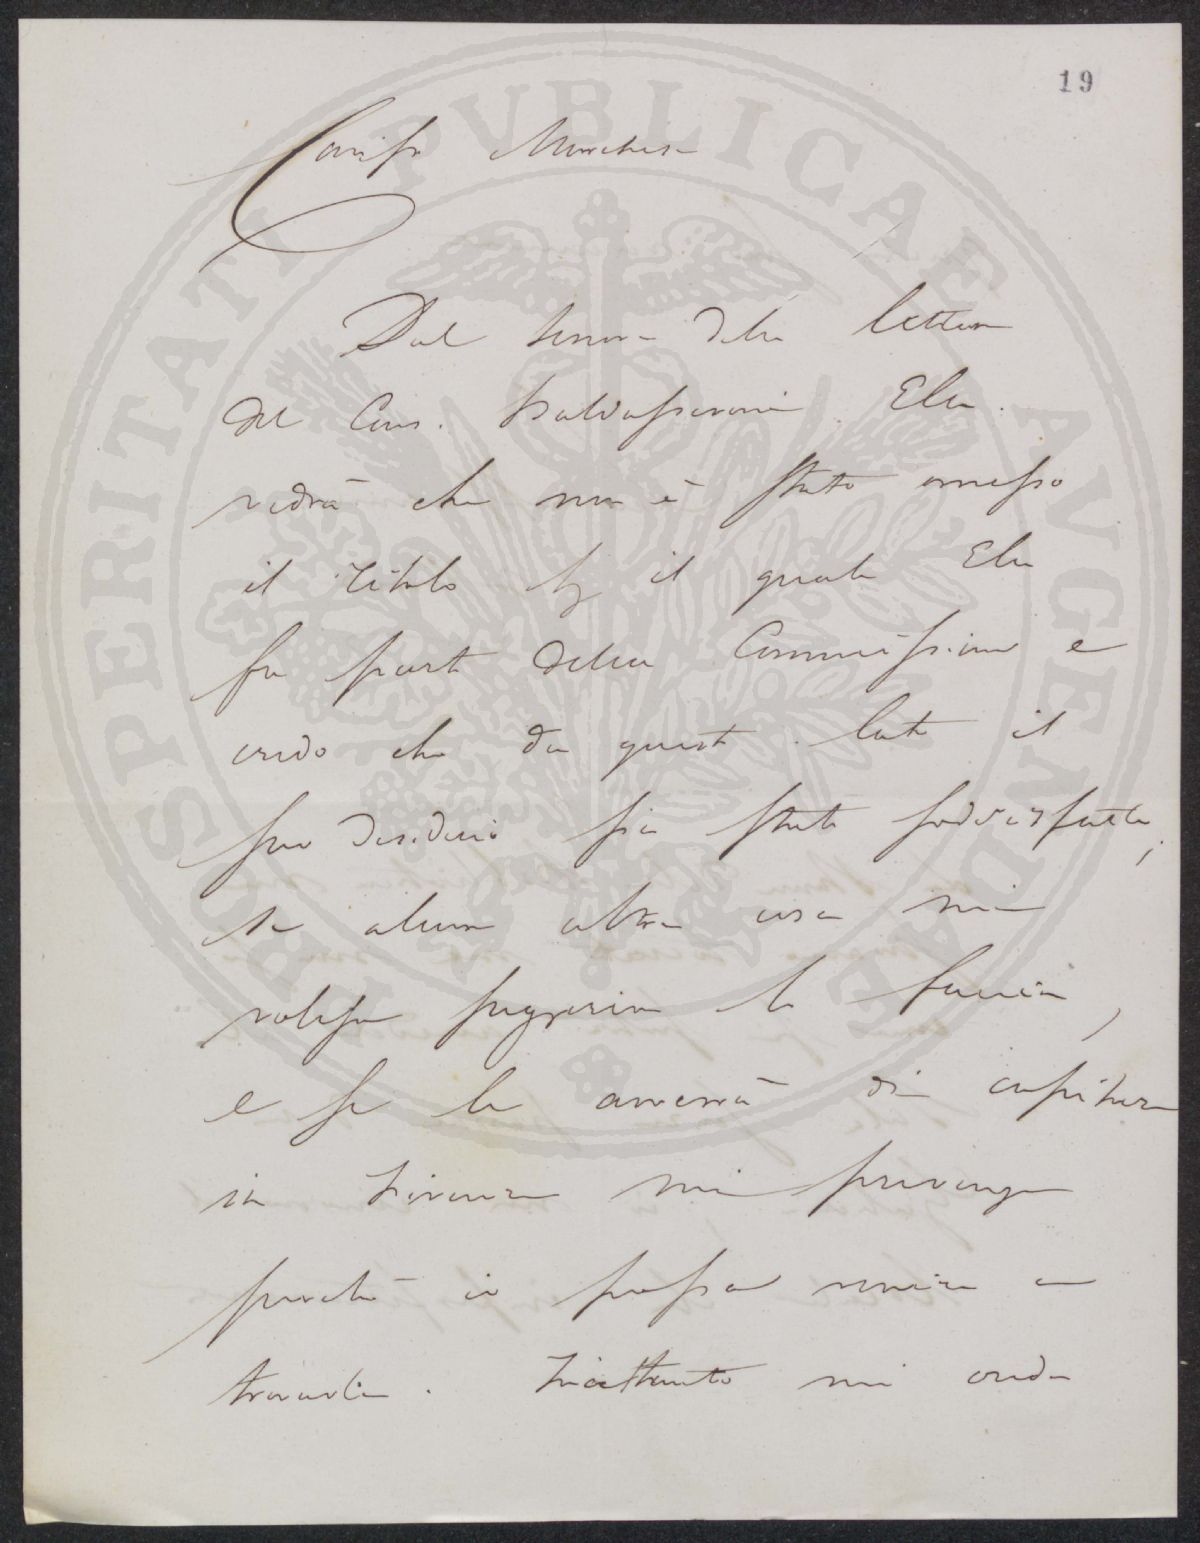 19
Cariss. Marchese
Dal tenore della lettera
del Cons. Baldasseroni Ella
vedrà che non è stato omesso
il titolo per il quale Ella
fa parte della Commissione e
credo che da questo lato il
suo desiderio sia stato soddisfatto;
se alcuna altra cosa mi
volesse suggerire lo faccia,
e se le avverrà di capitare
in Firenze mi prevenga
perché io possa venire a
trovarla. Frattanto mi creda
PROSPERITATI PVBLICAE AVGENDAE